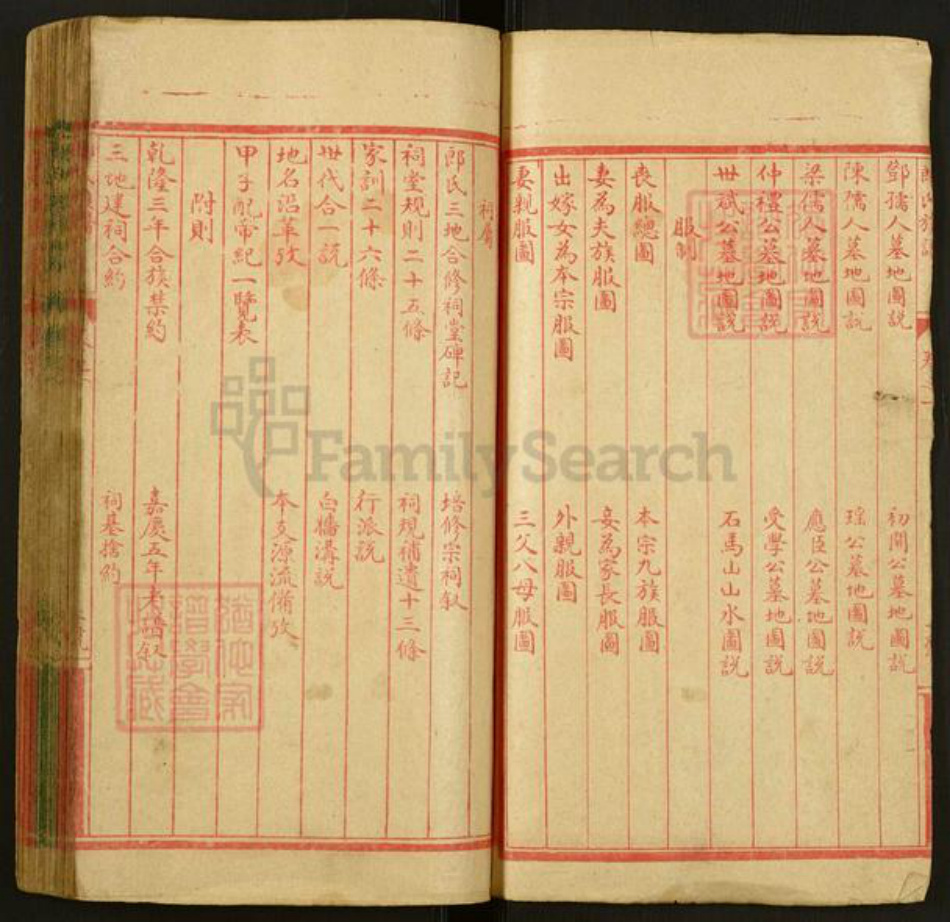 鄧孺人墓地圖說 初開公墓地圖說
陳孺人墓地圖說 瑤公墓地圖說
梁儒人墓地圖說 應臣公墓地圖說
仲禮公墓地圖說 受學公墓地圖說
世斌公墓地圖說 石馬山山水圖說
服制
喪服總圖 本宗九族服圖
妻為夫族服圖 妾為家長服圖
出嫁女為本宗服圖 外親服圖
妻親服圖 三父八母服圖
祠屬
郎氏三地合修祠堂碑記 培修宗祠叙
祠堂規則二十五條 祠規補遺十三條
家訓二十六條 行派說
世代合一說 白蠟溝說
地名沿革攷 本支源流備攷
甲子配帝紀一覽表
附則
乾隆三年合族禁約 嘉慶五年老譜叙
三地建祠合約 祠基捨約
FamilySearch